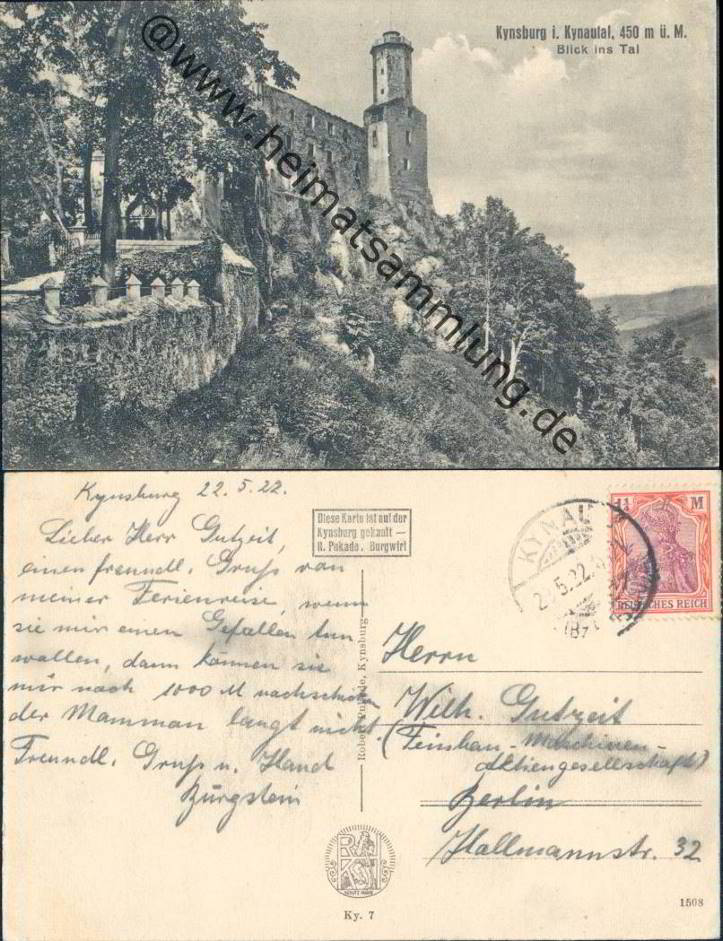 Kynsburg i. Kynautal, 450 m ü. M.
Blick ins Tal
@www.heimatsammlung.de
Kynsburg 22.5.22.
Lieber Herr Gutzeit,
einen freundl. Gruß von
meiner Ferienreise, wenn
sie mir einen Gefallen tun
wollen, dann können sie
mir noch 1000 M nachschicken
der Mamman langt nicht.
Freundl. Gruß u. Hand
Bürgstein
Diese Karte ist auf der
Kynsburg gekauft —
R. Pakade, Burgwirt
Robert Pakade, Kynsburg
KYNAU
5.22.
1¼ M
DEUTSCHES REICH
Herrn
Wilh. Gutzeit
(Feinbau-Maschinen-
Aktiengesellschaft)
Berlin
Hallmannstr. 32
Ky. 7
1508